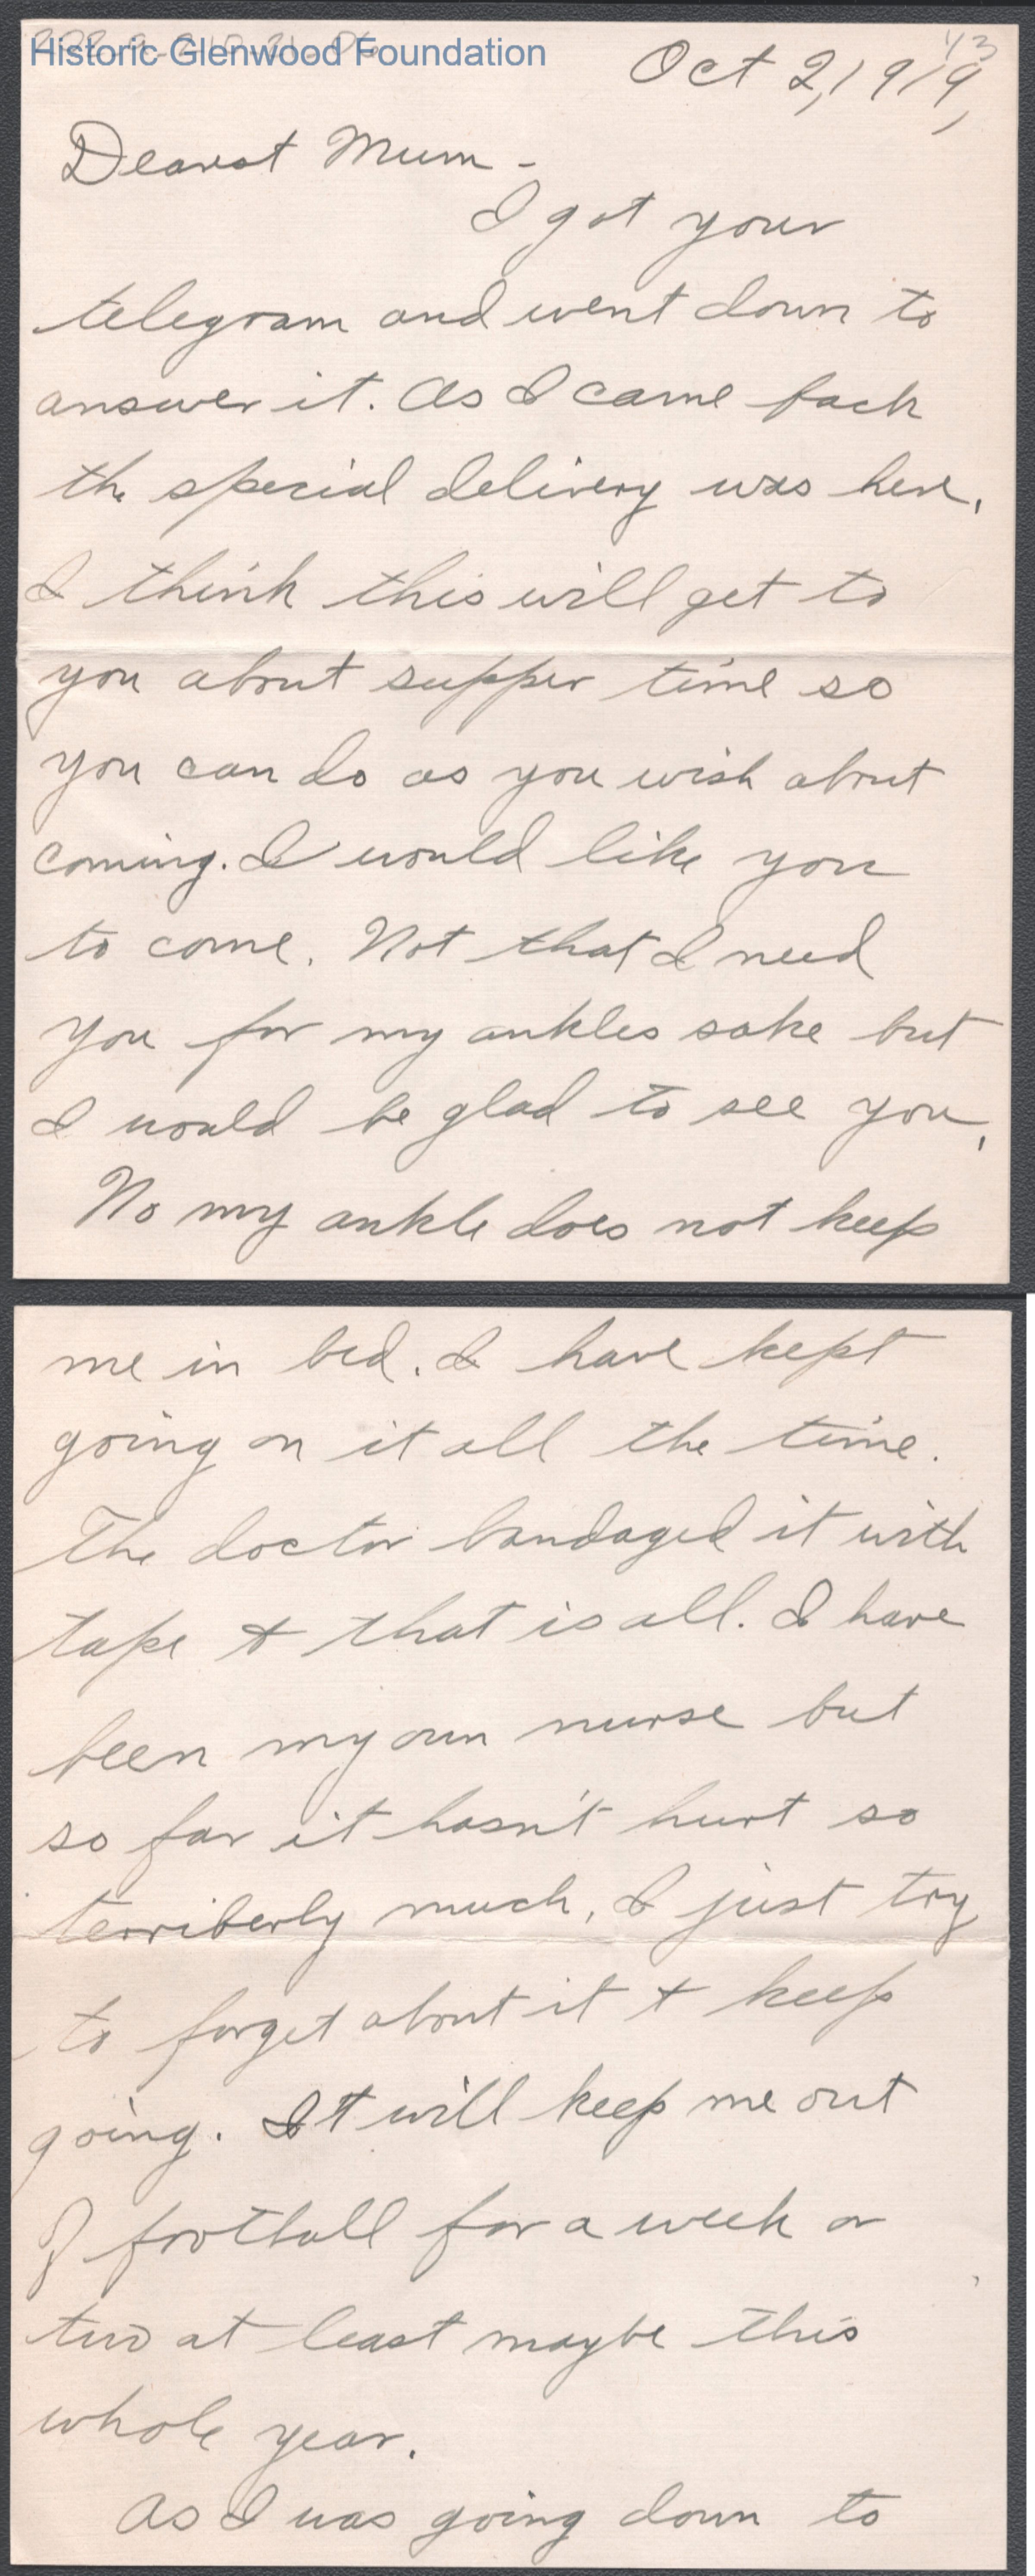 Historic Glenwood Foundation
1/3
Oct 2, 1919,
Dearest Mum -
I got your
telegram and went down to
answer it. As I came back
the special delivery was here.
I think this will get to
you about supper time so
you can do as you wish about
coming. I would like you
to come. Not that I need
you for my ankles sake but
I would be glad to see you.
No my ankle does not keep
me in bed. I have kept
going on it all the time.
The doctor bandaged it with
tape & that is all. I have
been my own nurse but
so far it hasn't hurt so
terriberly much, I just try
to forget about it & keep
going. It will keep me out
of football for a week or
two at least maybe this
whole year.
As I was going down to